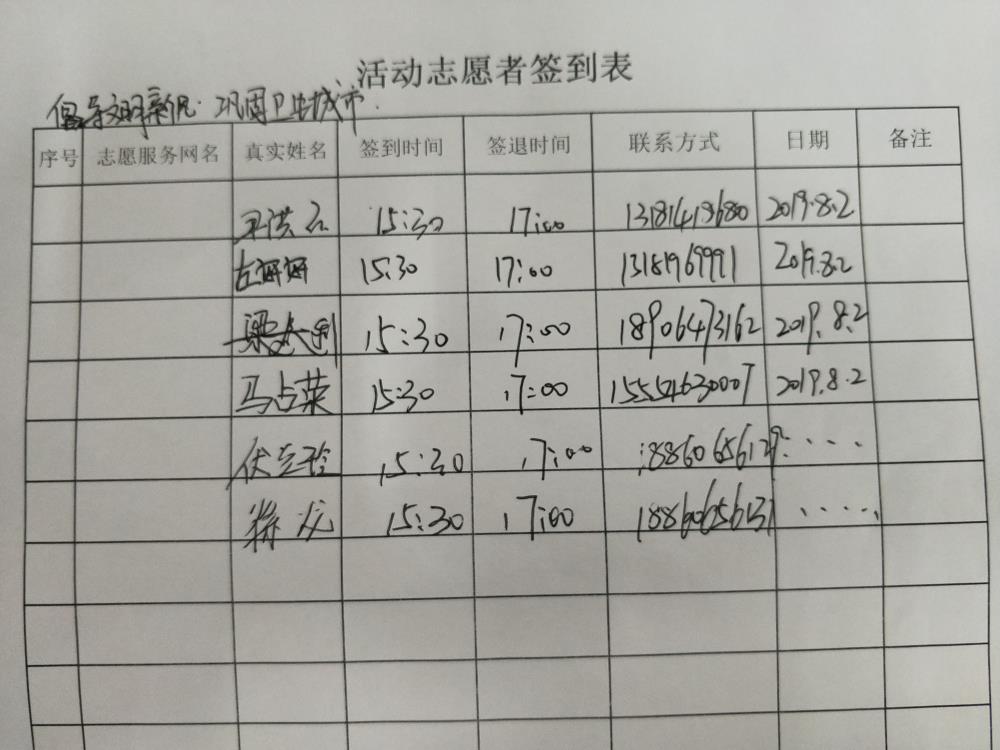 活动志愿者签到表
倡导文明新风·巩固卫生城市
序号 志愿服务网名 真实姓名 签到时间 签退时间 联系方式 日期 备注
15:30 17:00 13181419680 2019.8.2
左 15:30 17:00 13181969991 2019.8.2
梁 15:30 17:00 18906473162 2019.8.2
马占荣 15:30 17:00 15554630007 2019.8.2
伏立玲 15:30 17:00 18860656129
龙 15:30 17:00 18860656131